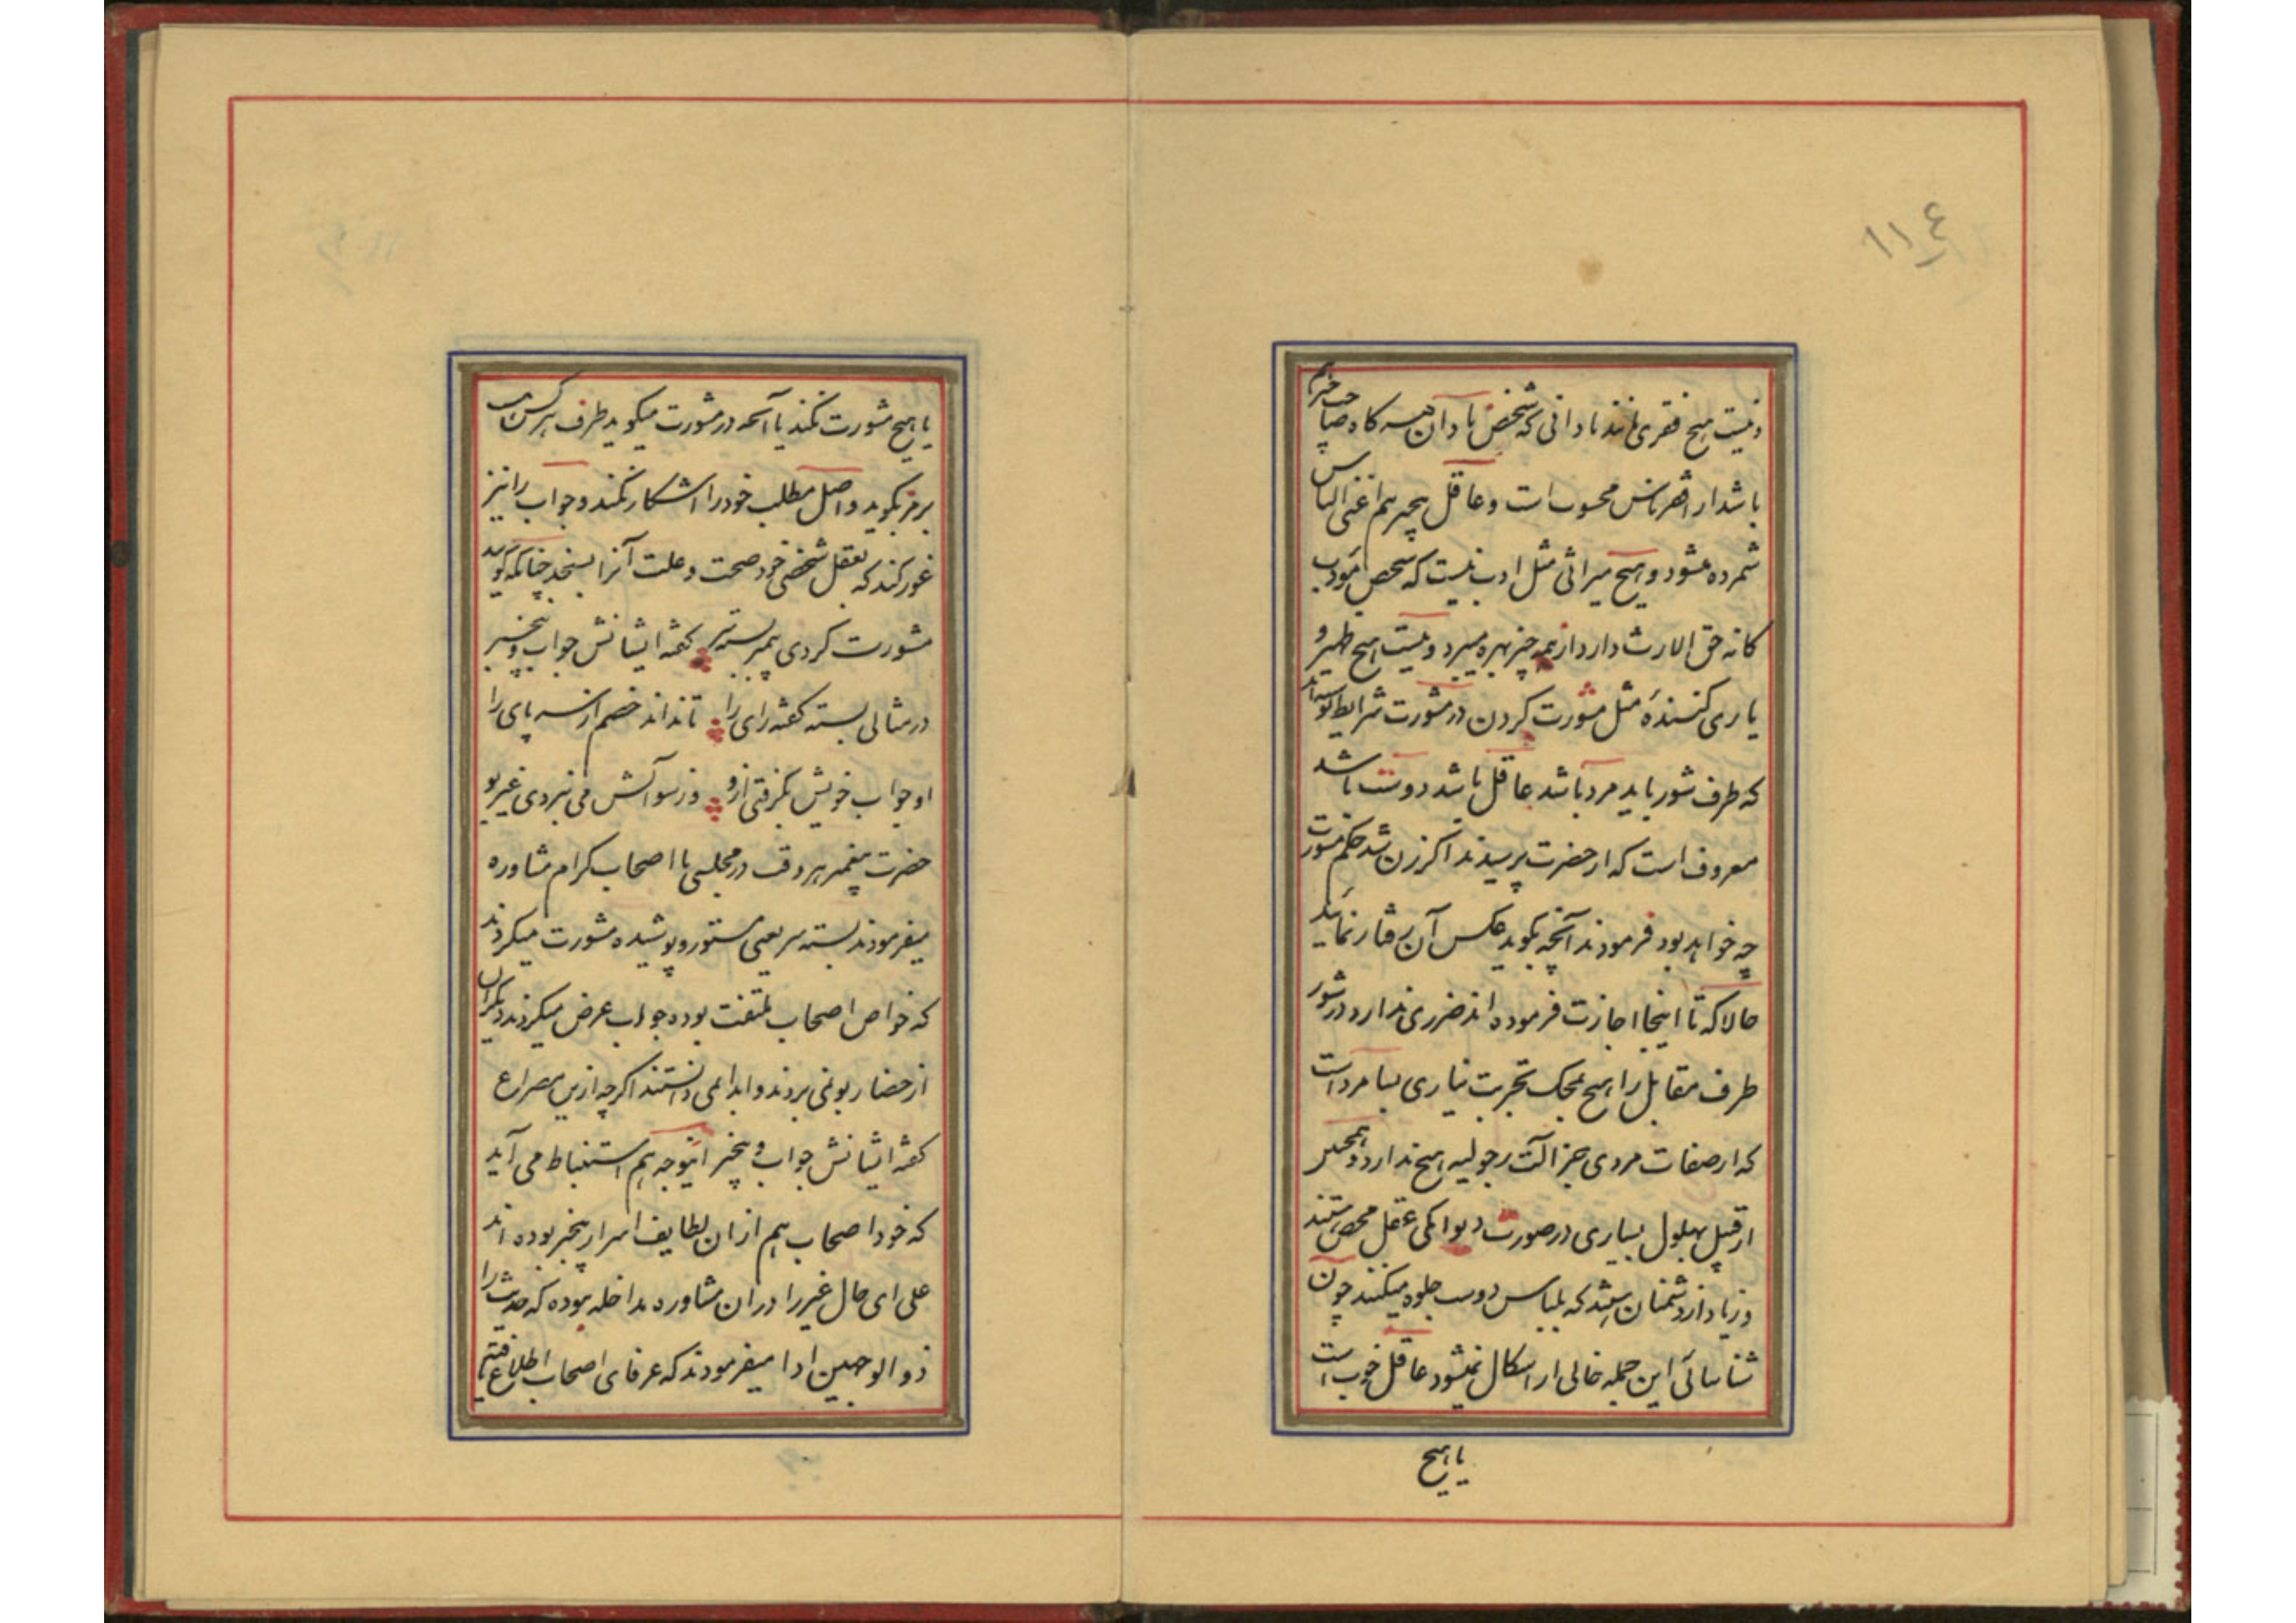 ١١٤
و نیست هیچ فقری مانند نادانی که شخص نادان هر گاه صاحب خزاین
باشد از افقر ناس محسوب است و عاقل بی‌چیز هم اغنی الناس
شمرده میشود و هیچ میراثی مثل ادب نیست که شخص مؤدب
کانه حق الارث دارد از همه چیز بهره میبرد و نیست هیچ ظهیر و
یاری کننده مثل مشورت کردن در مشورت شرایط نوشته‌اند
که طرف شور باید مرد باشد عاقل باشد دوست باشد
معروف است که از حضرت پرسیدند اگر زن شد حکم مشورت
چه خواهد بود فرمودند آنچه بگوید عکس آن رفتار نمائید
حالا که تا اینجا اجازت فرموده‌اند ضرری ندارد در شور
طرف مقابل را هیچ بمحک تجربت نیاری بسا مرد است
که از صفات مردی جز آلت رجولیه هیچ ندارد و همچنین
از قبیل بهلول بسیاری در صورت دیوانگی عقل محض هستند
و زیاد از دشمنان باشند که بلباس دوست جلوه میکنند چون
شناسائی این جمله خالی از اشکال نمیشود عاقل خوب است
یا هیچ
یا هیچ مشورت نکند یا آنچه در مشورت میگوید طرف هر کس است
برمز بگوید و اصل مطلب خود را آشکار نکند و جواب را نیز
غور کند که بعقل شخصی خود صحت و علت آنرا بسنجد چنانکه گوید
مشورت کردی پیمبر بسته سر گفته ایشانش جواب و بیخبر
در مثالی بسته گفته رای را تا نداند خصم از سر پای را
او جواب خویش بگرفتی ازو وز سوآلش می نبردی غیر بو
حضرت پیغمبر هر وقت در مجلسی با اصحاب کرام مشاوره
میفرمودند بسته سر یعنی مستور و پوشیده مشورت میکردند
که خواص اصحاب ملتفت بوده جواب عرض میکردند دیگران
از حضار بو نمی‌بردند و ابدا نمی‌دانستند اگرچه ازین مصراع
گفته ایشانش جواب و بیخبر اینوجه هم استنباط می آید
که خود اصحاب هم از ان لطایف اسرار بیخبر بوده‌اند
علی ای حال غیر را در ان مشاوره مداخله نبوده که حدیث را
ذو الوجهین ادا میفرمودند که عرفای اصحاب اطلاع یافته